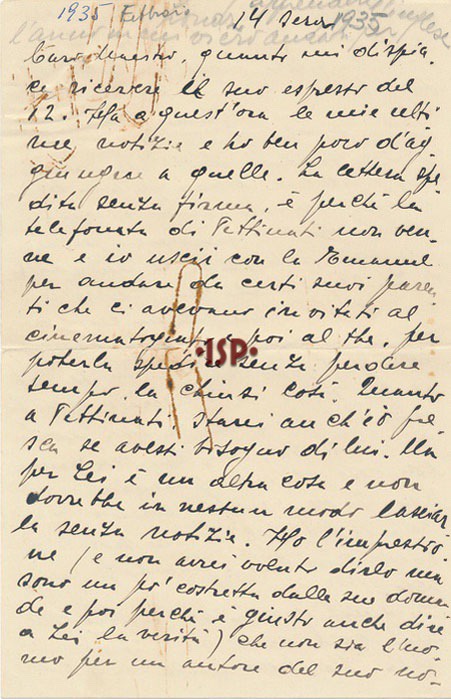 1935 Febbraio 14 sera 1935
Caro Maestro, quanto mi dispia,
ce ricevere il suo espresso del
12. Ha a quest'ora le mie ulti
me notizie e ho ben poco d'ag
giungere a quelle. La lettera spe
dita senza firma, è perché la
telefonata di Pettinati non ven-
ne e io uscii con la
per andare da certi suoi paren
ti che ci avevano invitati al
cinematografo e poi al the, per
poterla spedire senza perdere
tempo, la chiusi così. Quanto
a Pettinati starei anch'io fre
sca se avessi bisogno di lui. Ma
per Lei è un altra cosa e non
dovrebbe in nessun modo lasciar
la senza notizie. Ho l'impressio,
ne (e non avrei voluto dirlo ma
sono un pò costretta dalla sua doman
da e poi perché è giusto anche dire
a Lei la verità) che non sia l'uo,
mo per un autore del suo no-
·ISP·